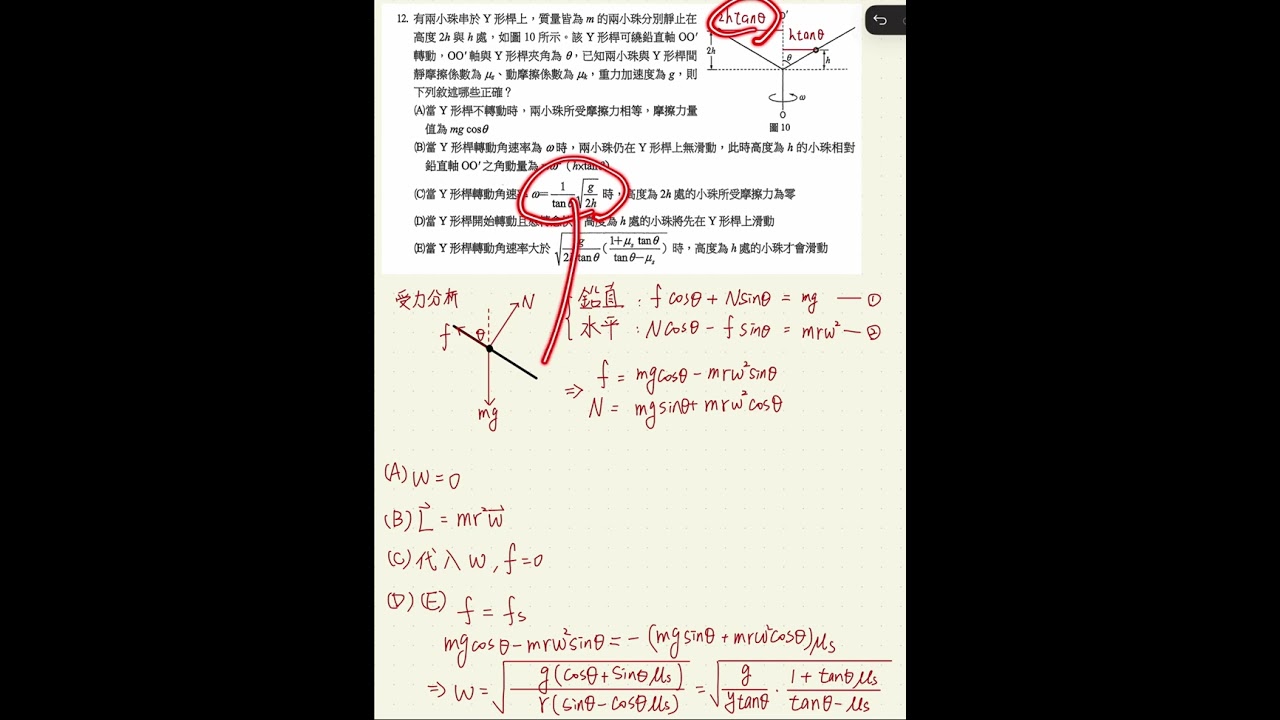 12. 有兩小珠串於 Y 形桿上，質量皆為 m 的兩小珠分別靜止在
高度 2h 與 h 處，如圖 10 所示。該 Y 形桿可繞鉛直軸 OO′
轉動，OO′ 軸與 Y 形桿夾角為 θ，已知兩小珠與 Y 形桿間
靜摩擦係數為 μs、動摩擦係數為 μk，重力加速度為 g，則
下列敘述哪些正確？
(A)當 Y 形桿不轉動時，兩小珠所受摩擦力相等，摩擦力量
值為 mg cosθ
(B)當 Y 形桿轉動角速率為 ω 時，兩小珠仍在 Y 形桿上無滑動，此時高度為 h 的小珠相對
鉛直軸 OO′ 之角動量為
(C)當 Y 形桿轉動角速 ω=1/tanθ √(g/2h) 時，高度為 2h 處的小珠所受摩擦力為零
(D)當 Y 形桿開始轉動且 高度為 h 處的小珠將先在 Y 形桿上滑動
(E)當 Y 形桿轉動角速率大於 √(g/2h tanθ (1+μs tanθ/tanθ−μs)) 時，高度為 h 處的小珠才會滑動
2htanθ
O′
htanθ
2h
θ
h
ω
O
圖 10
受力分析
N
f
θ
mg
鉛直 : f cosθ + N sinθ = mg — ①
水平 : N cosθ − f sinθ = mrω² — ②
⇒ f = mgcosθ − mrω²sinθ
N = mgsinθ + mrω²cosθ
(A) ω = 0
(B) L⃗ = mr²ω⃗
(C) 代入 ω , f = 0
(D) (E) f = fs
mgcosθ − mrω²sinθ = − (mgsinθ + mrω²cosθ)μs
⇒ ω = √(g(cosθ + sinθμs)/r(sinθ − cosθμs)) = √(g/ytanθ · 1 + tanθμs/tanθ − μs)